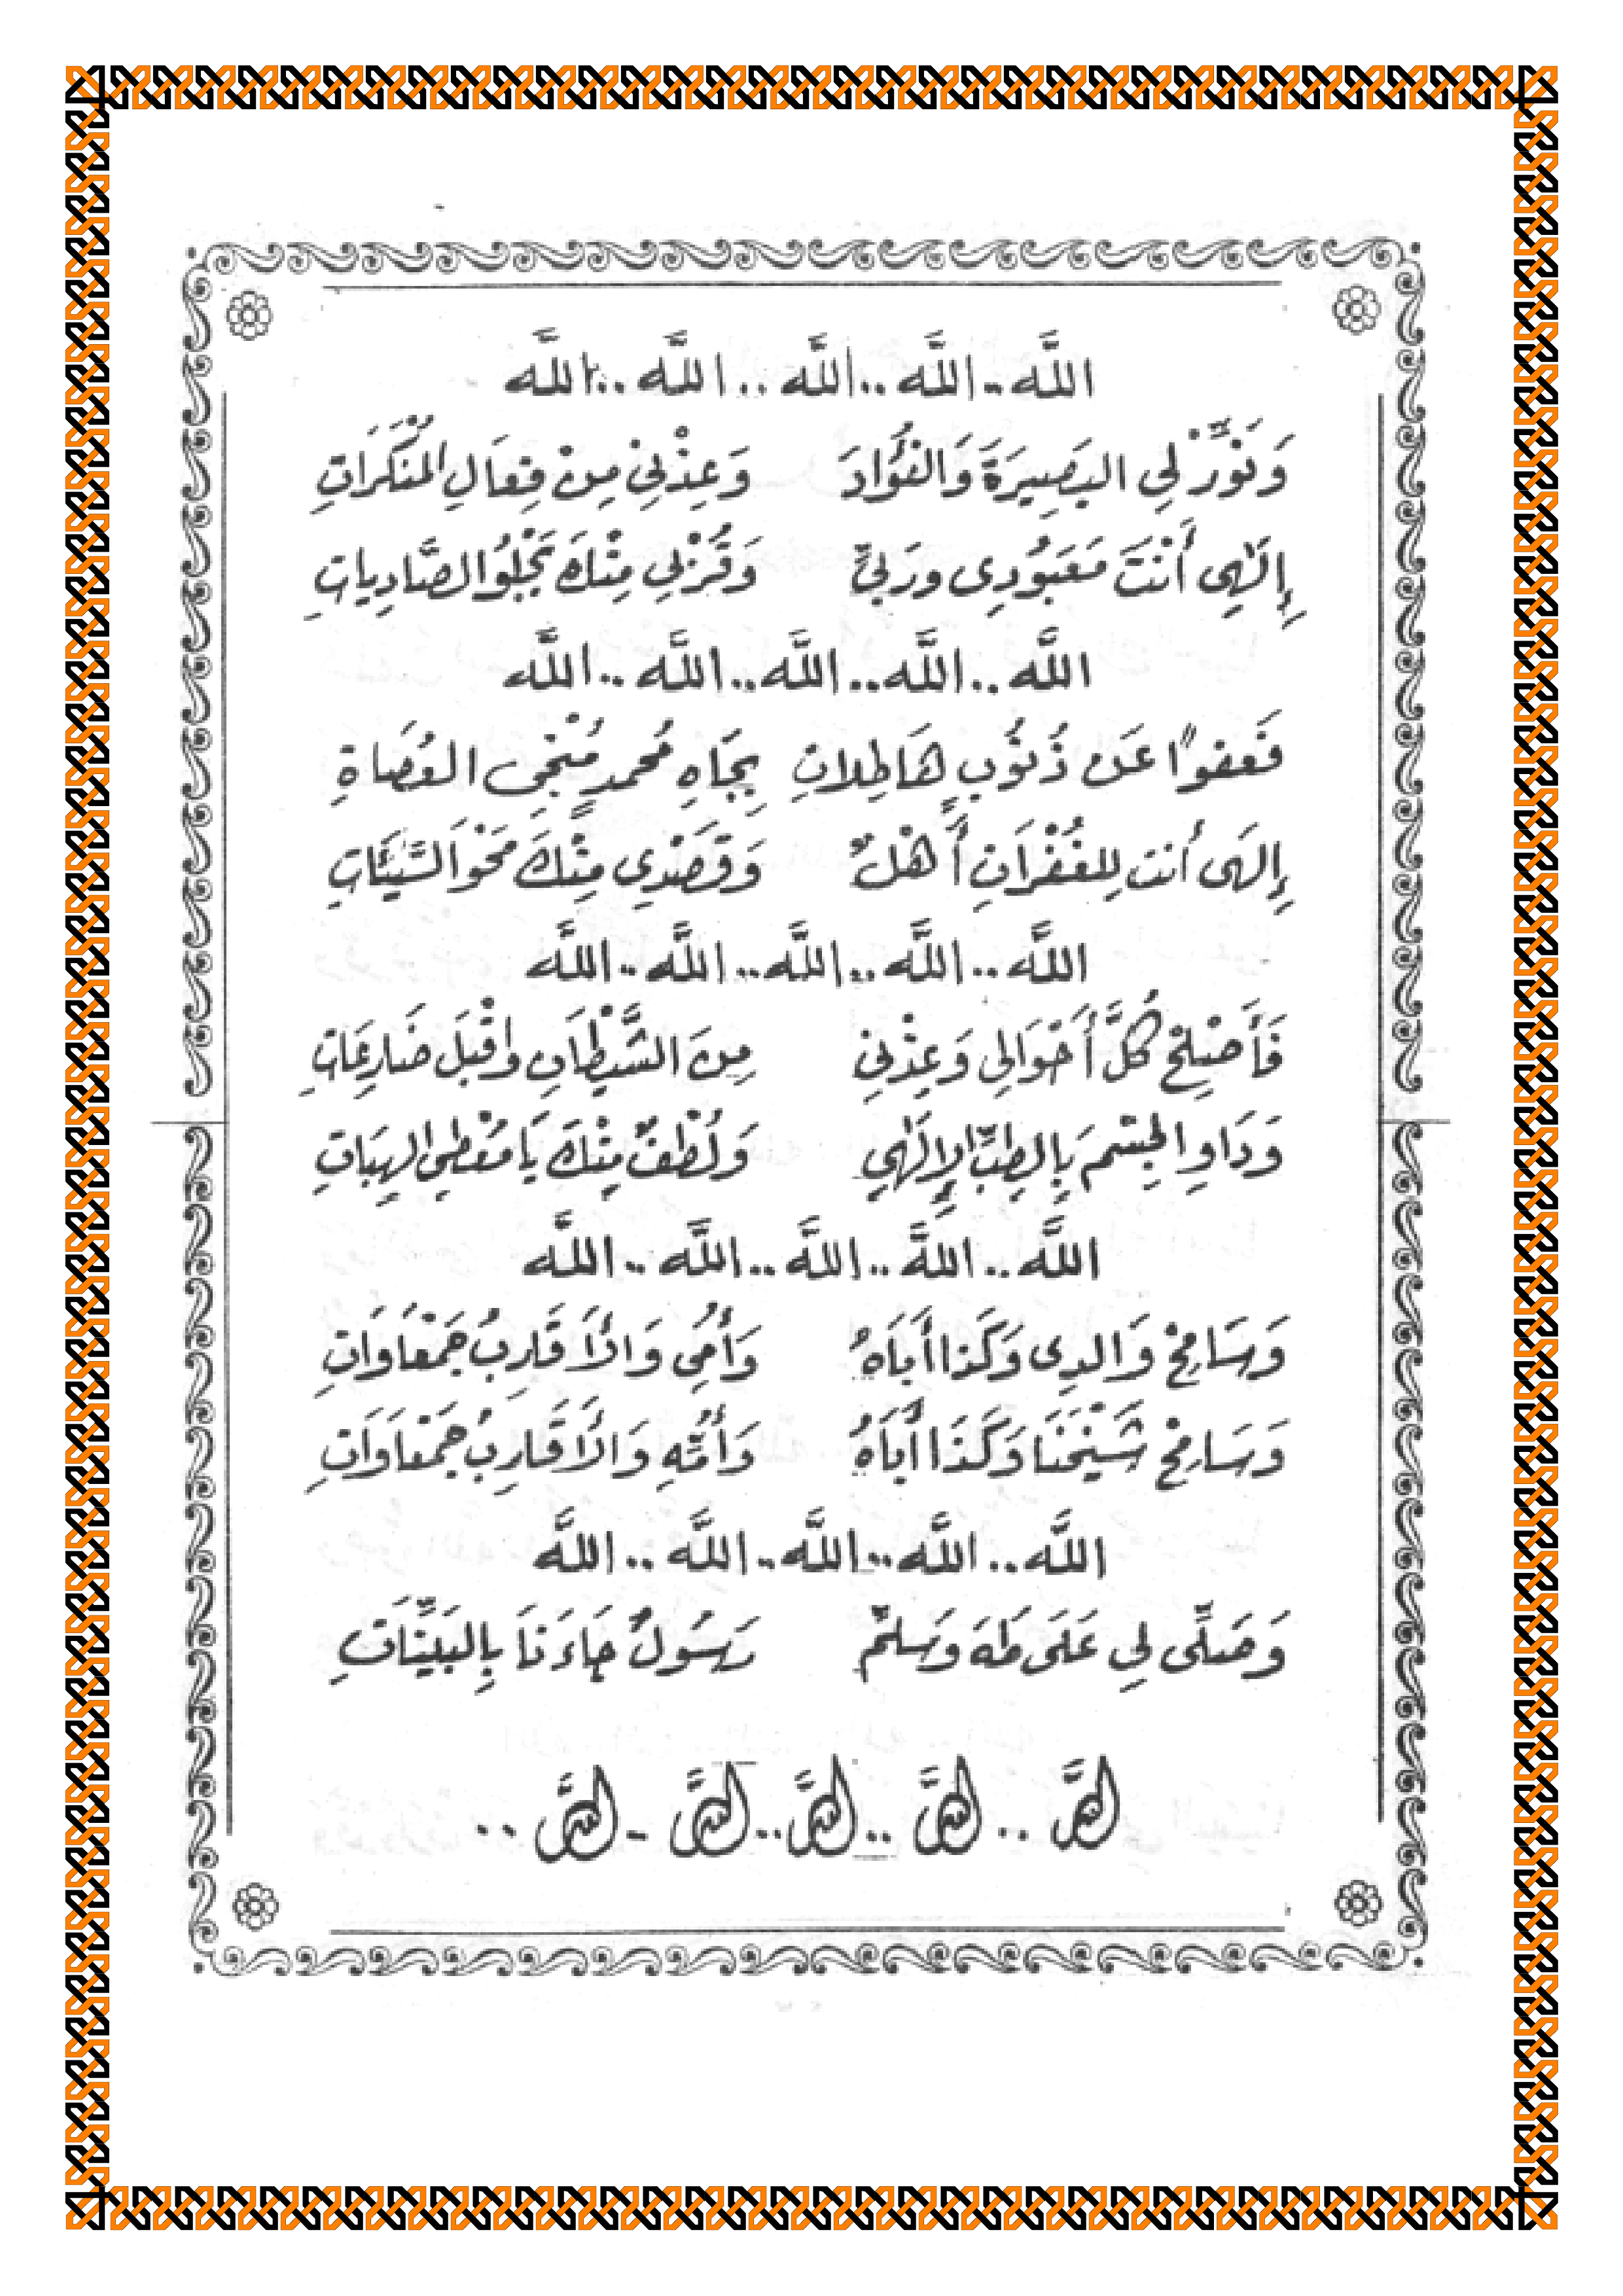 اللَّه .. اللَّه .. اللَّه .. اللَّه .. اللَّه
وَنَوِّرْ لِي البَصِيرَةَ وَالفُؤَادَ وَعِذْنِي مِنْ فِعَالِ المُنْكَرَاتِ
إِلَهِي أَنْتَ مَعْبُودِى وَرَبِّي مِنْكَ يَجْلُو الصَّادِيَاتِ
اللَّه .. اللَّه .. اللَّه .. اللَّه .. اللَّه
فَعَفوًا عَن ذُنُوبٍ هَاطِلاتِ بِجَاهِ مُحمدٍ مُنْجِى العُصَاةِ
إِلهَى أَنتَ لِلغُفْرَانِ أَهْلٌ وَقَصْدِى مِنْكَ مَحْوَ السَّيِّئَاتِ
اللَّه .. اللَّه .. اللَّه .. اللَّه .. اللَّه
فَأَصْلِحْ كُلَّ أَحْوَالِى وَعِذْنِي مِنَ الشَّيْطَانِ واقْبَل ضَارِعَاتِ
وَدَاوِ الجِسْم بِالطِبِّ الإِلَهِي وَلُطْفٌ مِنْكَ يَا مُعْطِي الهِبَاتِ
اللَّه .. اللَّه .. اللَّه .. اللَّه .. اللَّه
وَسَامِحْ وَالدِى وَكَذا أَبَاهُ وَأُمِى وَالأَقَارِبُ جَمْعَاوَاتِ
وَسَامِحْ شَيْخَنَا وَكَذَا أَبَاهُ وَأُمِّهِ وَالأَقَارِبُ جَمْعَاوَاتِ
اللَّه .. اللَّه .. اللَّه .. اللَّه .. اللَّه
وَصَلِّى لِي عَلَى طَهَ وَسَلِّمْ رَسُولٌ جَاءَنَا بِالبَيِّنَاتِ
اللَّه .. اللَّه .. اللَّه .. اللَّه - اللَّه ..